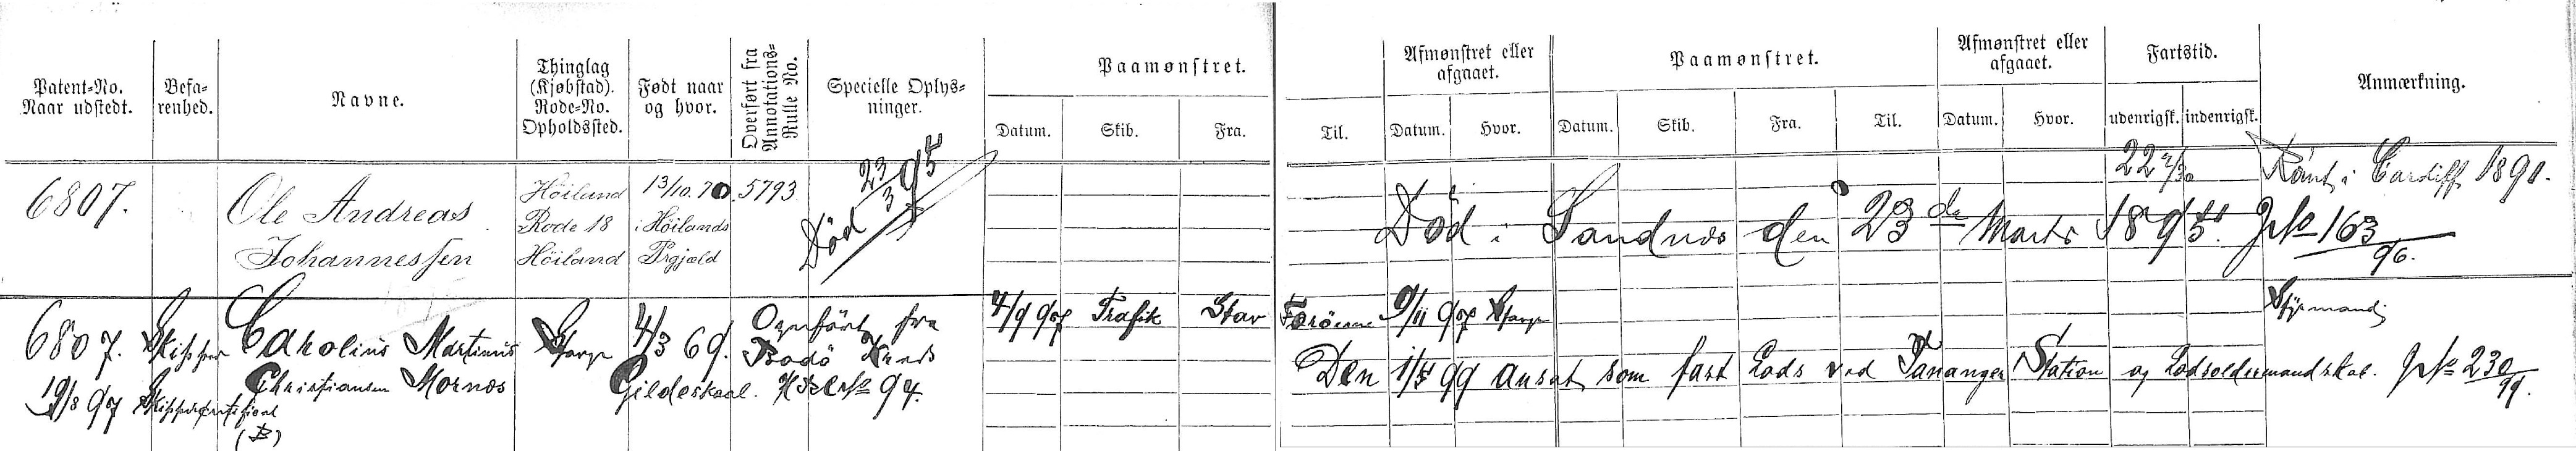 Patent-No.
Naar udstedt.
Befa-
renhed.
Navne.
Thinglag
(Kjøbstad).
Rode-No.
Opholdssted.
Født naar
og hvor.
Overført fra
Annotations-
Rulle No.
Specielle Oplys-
ninger.
Paamønstret.
Datum. Skib. Fra. Til.
Afmønstret eller
afgaaet.
Datum. Hvor.
Paamønstret.
Datum. Skib. Fra. Til.
Afmønstret eller
afgaaet.
Datum. Hvor.
Fartstid.
udenrigsk. indenrigsk.
Anmærkning.
6807.
Ole Andreas
Johannessen
Höiland
Rode 18
Höiland
13/10. 70
i Höilands
Prgjæld
5793
Död 23/3 95
Römt i Cardiff 1890.
Död i Sandnæs den 23de Marts 1895. J No 163/96.
6807.
19/8 97
Skipper
Carolius Martinus
Christiansen Mornæs
(B)
4/3 69.
Gildeskaal.
fra
Bodö Kreds
94.
4/9 97 Trafik Stav Færöerne 9/11 97
Styrmand
Den 1/5 99 ansat som fast Lods ved Tananger Station og Lodsoldermandskab. J No 230/99.